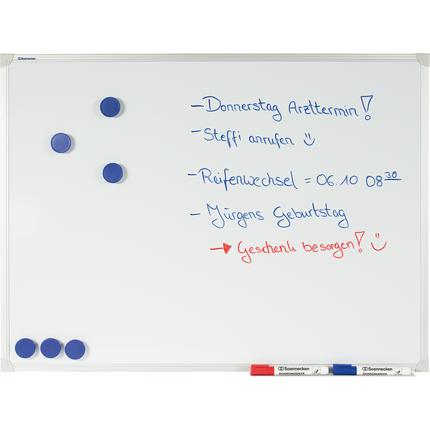 Soennecken
- Donnerstag Arzttermin!
- Steffi anrufen ☺
- Reifenwechsel = 06.10 08³⁰
- Jürgens Geburtstag
→ Geschenk besorgen! ☺
Soennecken Soennecken